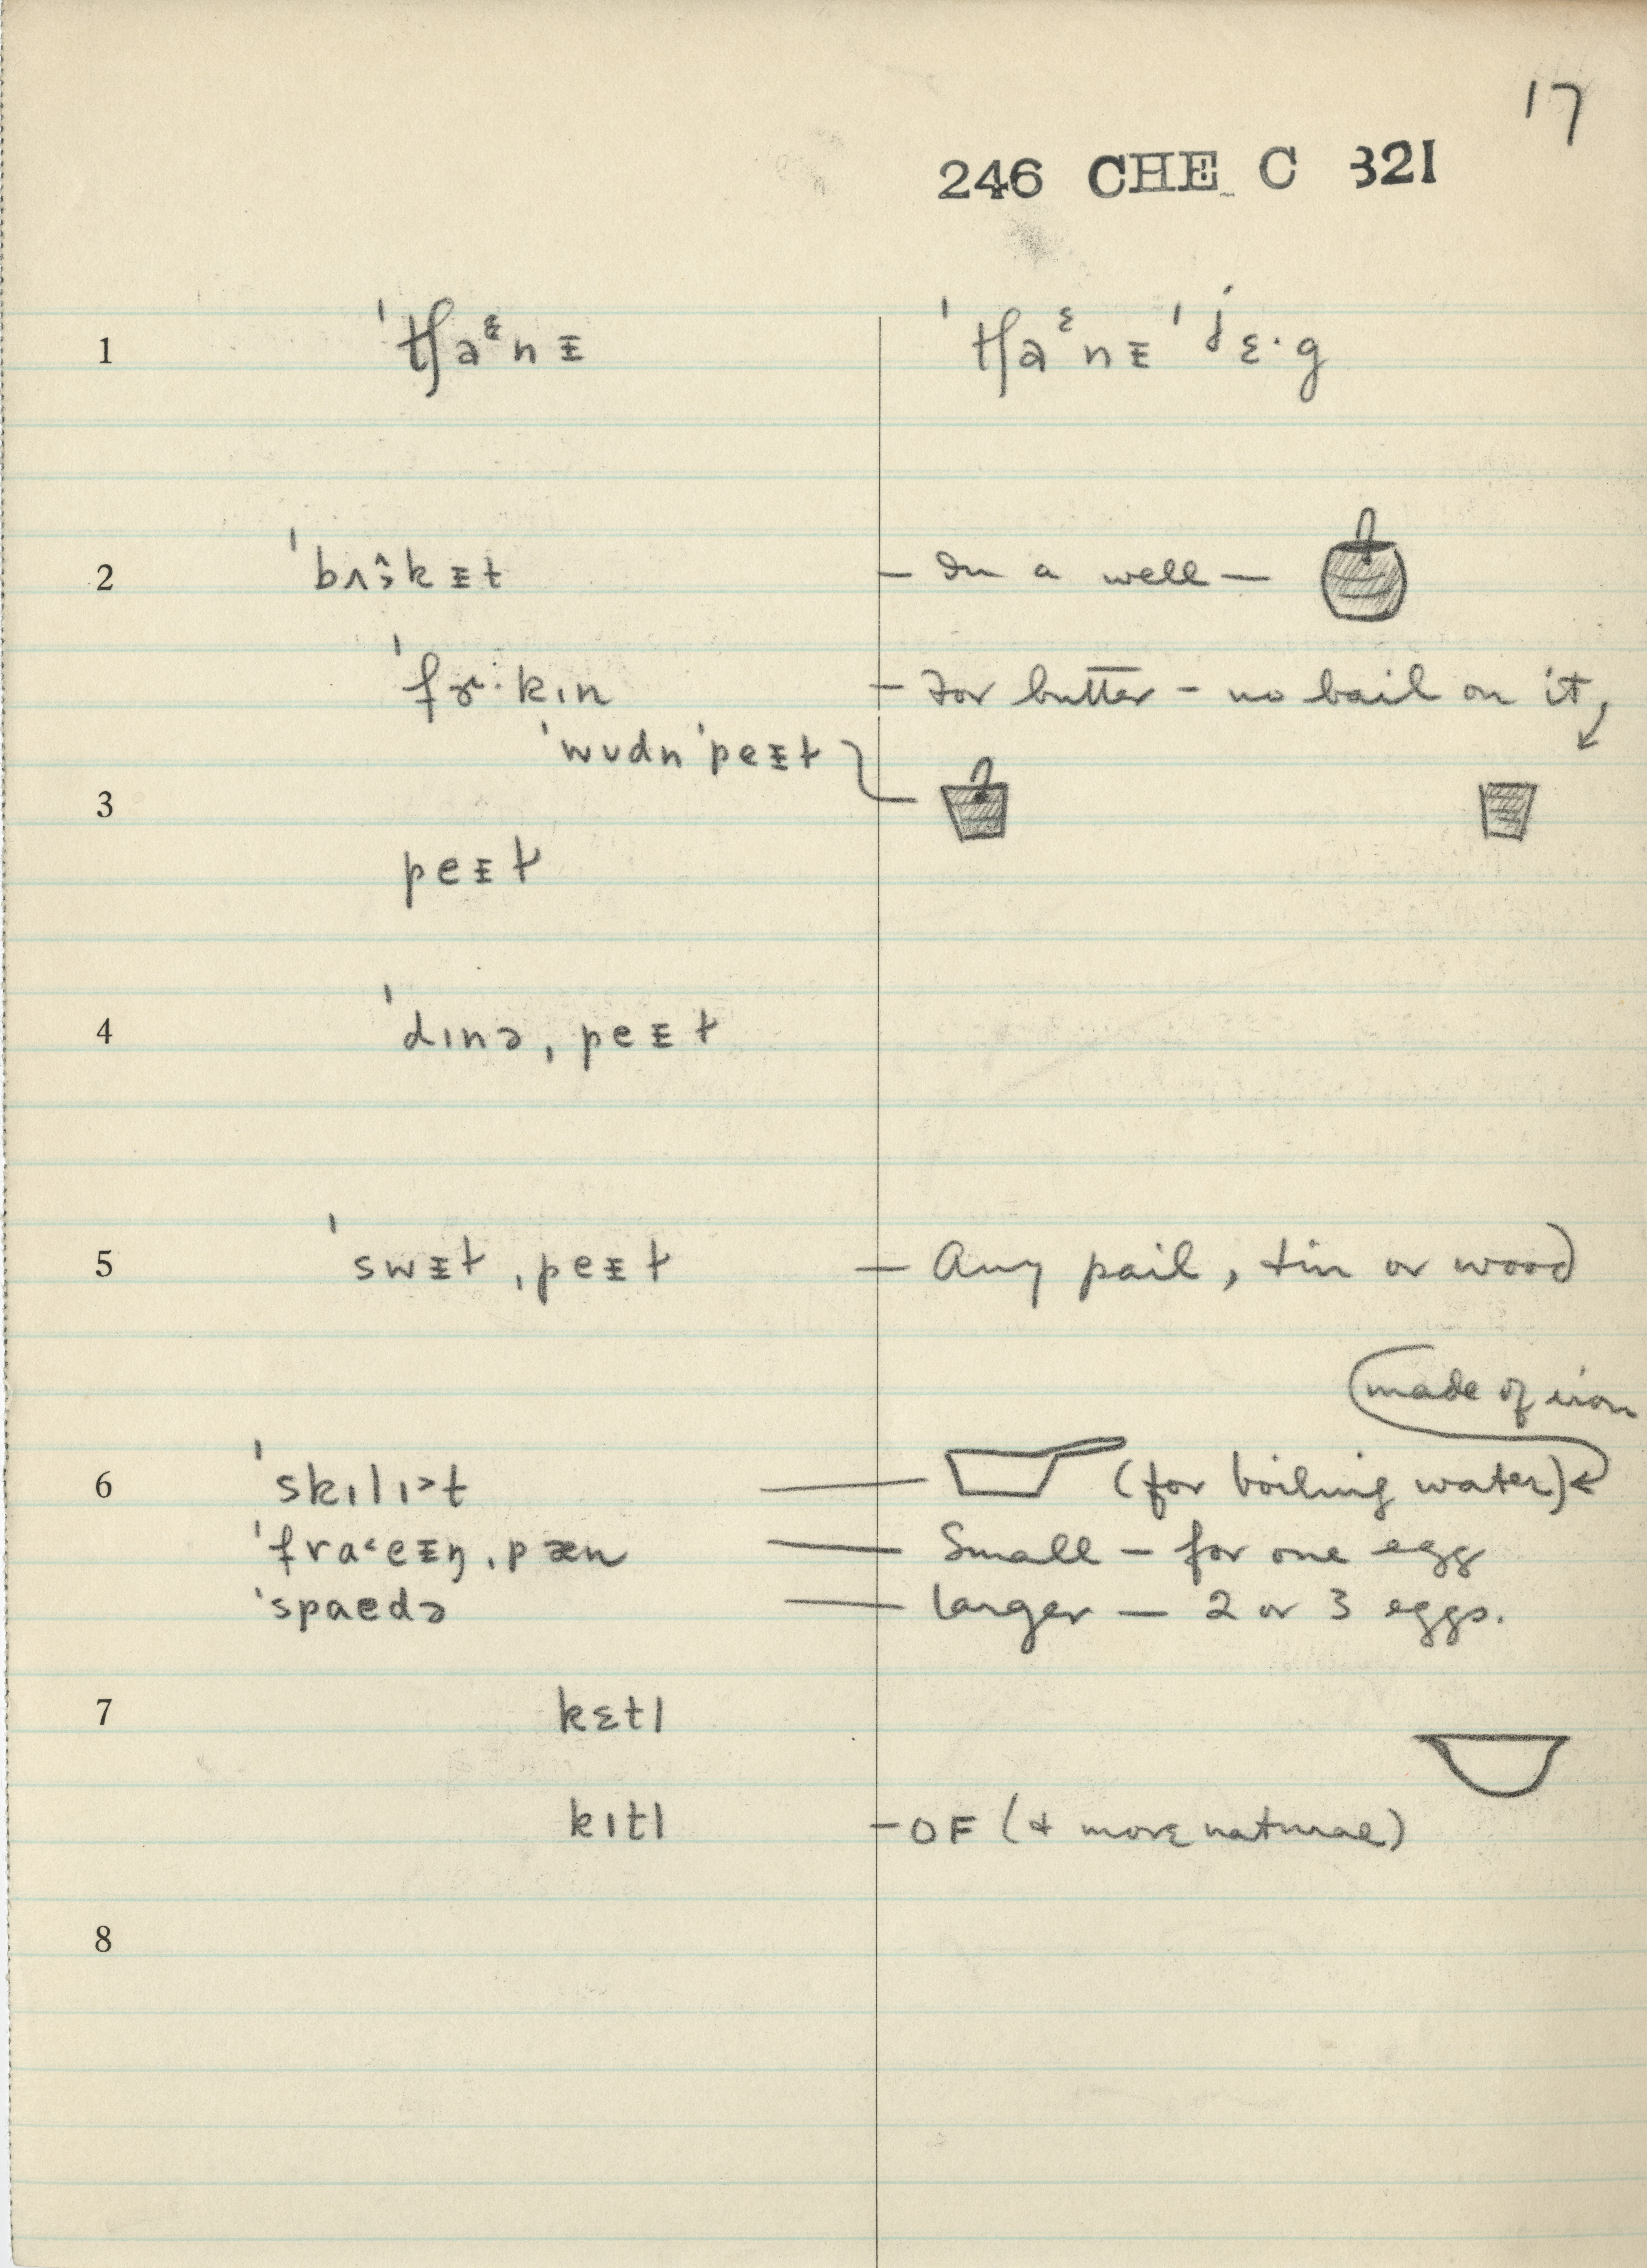 17
246 CHE C 321
1 ˈtʃaᵋnᵻ ˈtʃaᵋnᵻ ˈɟɛ·g
2 ˈbʌkᵻt – In a well –
ˈfɚ·kɪn – For butter – no bail on it,
ˈwʊdn ˈpeᵻɫ
3
peᵻɫ
4 ˈdɪnə ˌpeᵻɫ
5 ˈswᵻɫ ˌpeᵻɫ – Any pail, tin or wood
made of iron
6 ˈskɪlɪ˃t — (for boiling water)
ˈfra˂eᵻŋ ˌpæn — Small – for one egg
ˈspaedə — larger — 2 or 3 eggs.
7 kɛtl
kɪtl – OF (+ more natural)
8